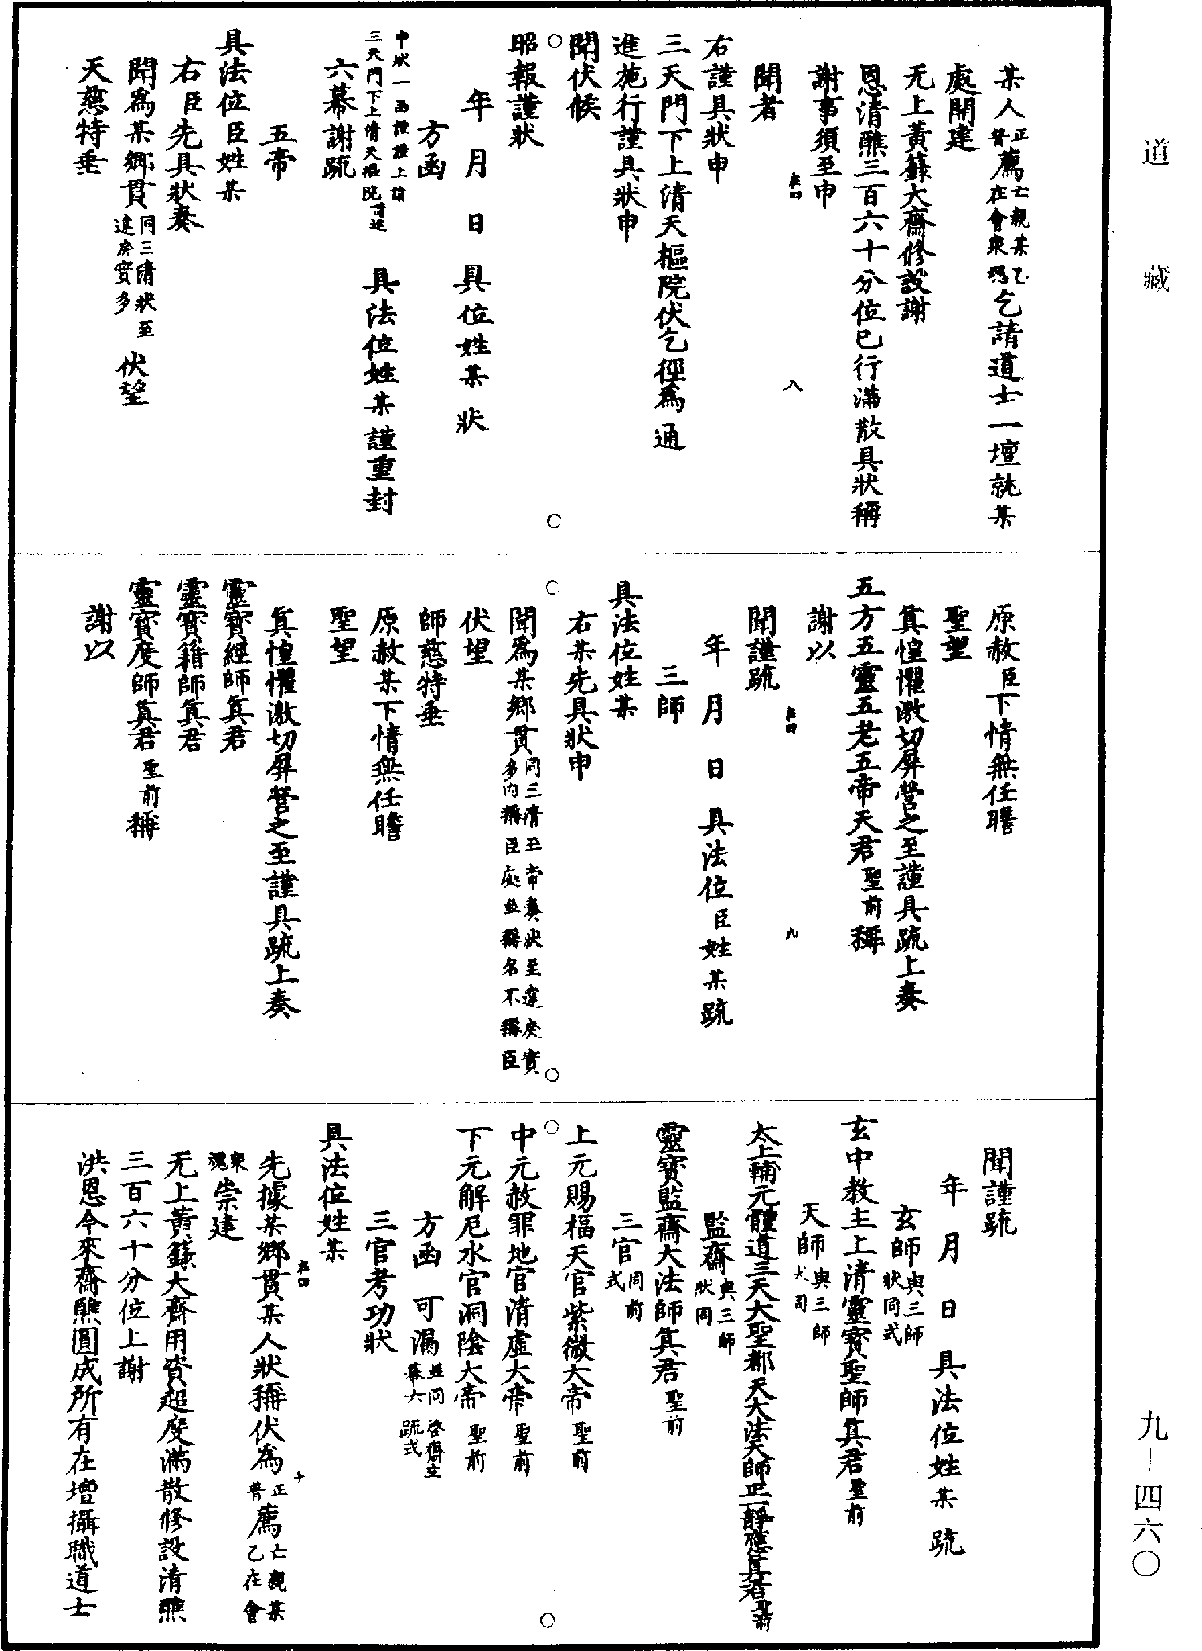 道藏
九—四六〇
某人正薦亡親某乙
普在會衆魂乞請道士一壇就某
處開建
无上黃籙大齋修設謝
恩清醮三百六十分位已行滿散具狀稱
謝事須至申
聞者
八
右謹具狀申
三天門下上清天樞院伏乞徑為通
進施行謹具狀申
聞伏候
昭報謹狀
年月日具位姓某狀
方函
申狀一函謹謹上詣
三天門下上清天樞院
具法位姓某謹重封
六幕謝疏
五帝
具法位臣姓某
右臣先具狀奏
聞為某鄉貫同三清狀至
違庚實多伏望
天慈特垂
原赦臣下情無任瞻
聖望
真惶懼激切屏營之至謹具疏上奏
五方五靈五老五帝天君聖前稱
謝以
聞謹疏
九
年月日具法位臣姓某疏
三師
具法位姓某
右某先具狀申
聞為某鄉貫同三清玉帝奏狀至違庚實
多內稱臣處並稱名不稱臣
伏望
師慈特垂
原赦某下情無任瞻
聖望
真惶懼激切屏營之至謹具疏上奏
靈寶經師真君
靈寶籍師真君
靈寶度師真君聖前稱
謝以
聞謹疏
年月日具法位姓某疏
玄師與三師
狀同式
玄中教主上清靈寶聖師真君聖前
天師與三師
太上輔元體道三天大聖都天大法天師正一靜應真君聖前
監齋與三師
狀同
靈寶監齋大法師真君聖前
三官同前
式
上元賜福天官紫微大帝聖前
中元赦罪地官清虛大帝聖前
下元解厄水官洞陰大帝聖前
方函可漏並同啓齋玄
幕六疏式
三官考功狀
具法位姓某
十
先據某鄉貫某人狀稱伏為正薦亡親某
普乙在會
衆魂崇建
无上黃籙大齋用資超度滿散修設清醮
三百六十分位上謝
洪恩今來齋醮圓成所有在壇攝職道士